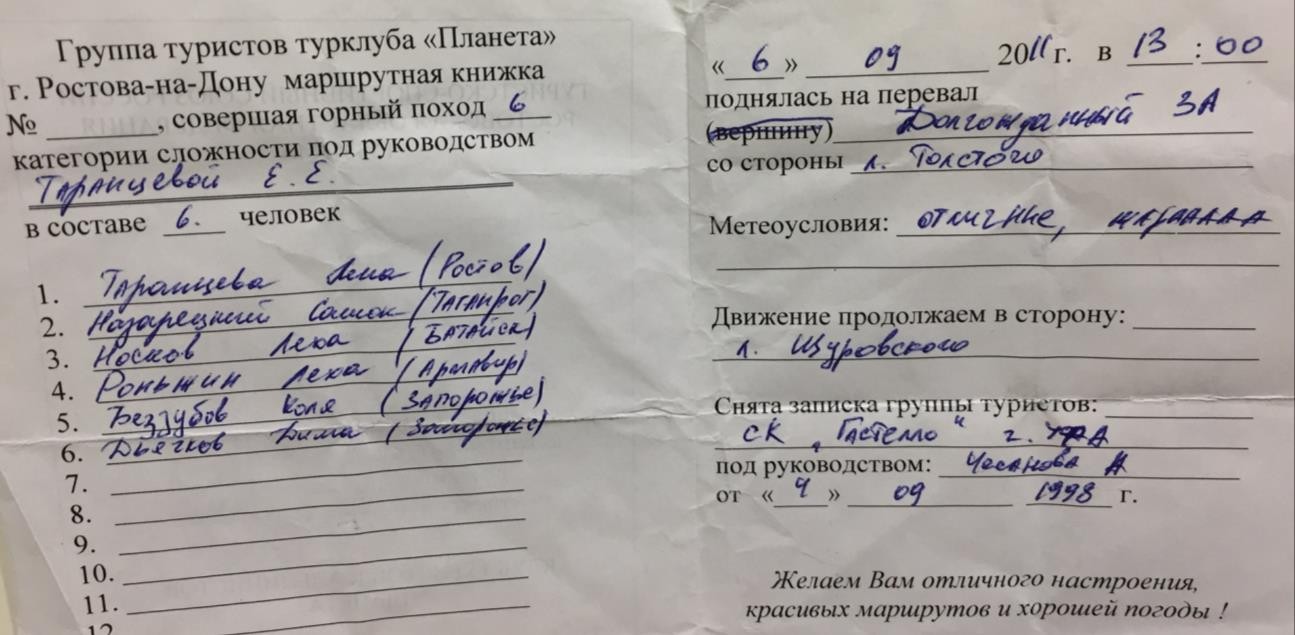 Группа туристов турклуба «Планета»
г. Ростова-на-Дону маршрутная книжка
№ ________, совершая горный поход 6
категории сложности под руководством
Таранцевой Е. Е.
в составе 6. человек
1. Таранцева Лена (Ростов)
2. Назарецкий Санёк (Таганрог)
3. Носков Леха (Батайск)
4. Роньжин Леха (Армавир)
5. Беззубов Коля (Запорожье)
6. Дьячков Дима (Запорожье)
7.
8.
9.
10.
11.
12
« 6 » 09 2011 г. в 13 : 00
поднялась на перевал
(вершину) Долгожданный 3А
со стороны л. Толстого
Метеоусловия: отличные, жараааа
Движение продолжаем в сторону:
л. Щуровского
Снята записка группы туристов:
СК „Гастелло" г. Уфа
под руководством: Чесанова А
от « 4 » 09 1998 г.
Желаем Вам отличного настроения,
красивых маршрутов и хорошей погоды !